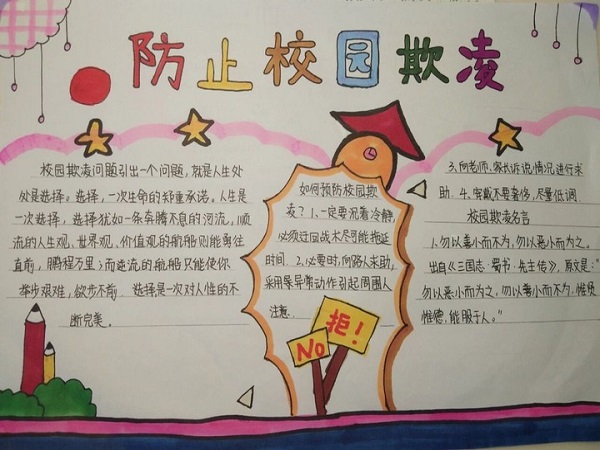 防止校园欺凌
校园欺凌问题引出一个问题,就是人生处
处是选择。选择,一次生命的郑重承诺。人生是
一次选择,选择犹如一条奔腾不息的河流,顺
流的人生观、世界观、价值观的航船则能勇往
直前,鹏程万里;而逆流的航船只能使你
举步艰难,欲步不前。选择是一次对人性的不
断完美。
如何预防校园欺
凌?1、一定要沉着冷静,
必须迂回战术尽可能拖延
时间。2、必要时,向路人求助,
采用异常动作引起周围人
注意。
拒!
NO
3、向老师、家长诉说情况,进行求
助。4、穿戴不要奢侈,尽量低调
校园欺凌名言
1、勿以善小而不为,勿以恶小而为之。
出自《三国志·蜀书·先主传》,原文是:“
勿以恶小而为之,勿以善小而不为,惟贤
惟德,能服于人。”